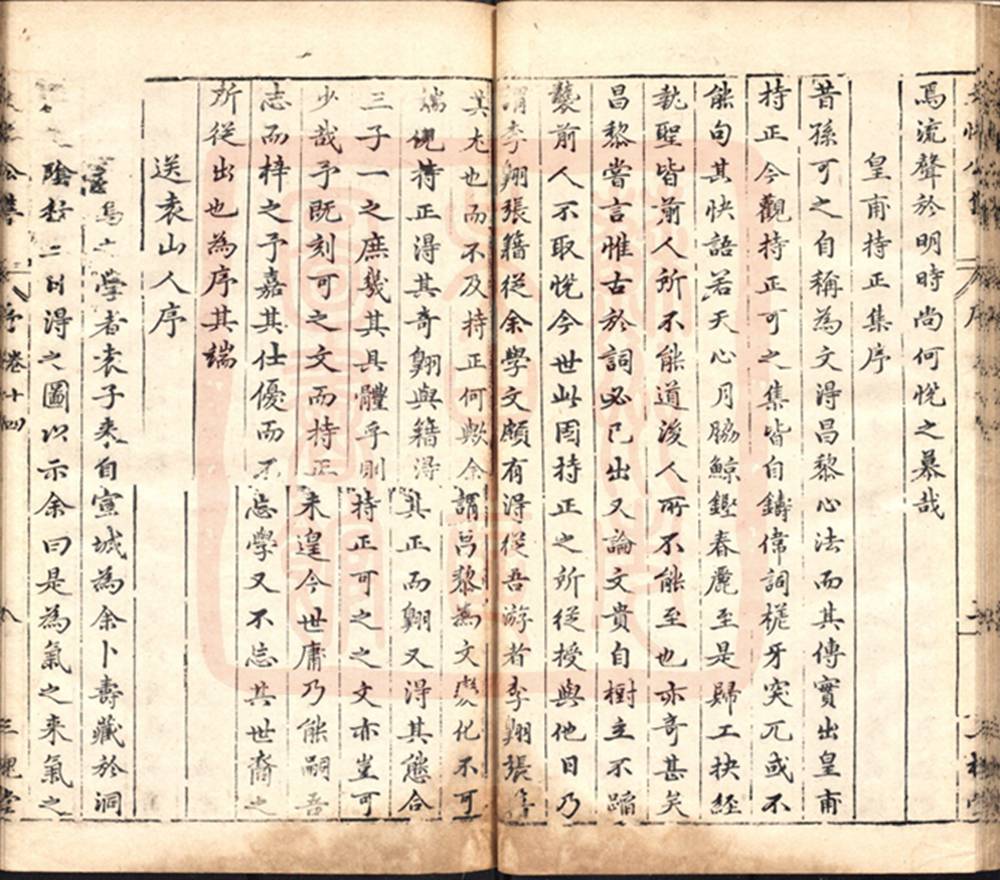 焉流聲於明時尚何恱之慕哉
皇甫持正集序
昔孫可之自稱為文得昌黎心法而其傳實出皇甫
持正今觀持正可之集皆自鑄偉詞槎牙突兀或不
能句其快語若天心月脇鯨鏗春麗至是歸工抉經
執聖皆前人所不能道後人所不能至也亦竒甚矣
昌黎嘗言惟古於詞必己出又論文貴自樹立不蹈
襲前人不取恱今世此固持正之所從授與他日乃
謂李翺張籍從余學文頗有得從吾游者李翔張籍
其尤也而不及持正何歟余謂昌黎為文變化不可
端倪持正得其奇翺與籍得其正而翺又得其態合
三子一之庶幾其具體乎則持正可之之文亦豈可
少哉予既刻可之文而持正未遑今世庸乃能嗣吾
志而梓之予嘉其仕優而不忘學又不忘其世裔之
所從出也為序其端
送袁山人序
之學者袁子來自宣城為余卜壽藏於洞
陰得之圖以示余曰是為氣之來氣之
序 卷十四 八 三槐堂